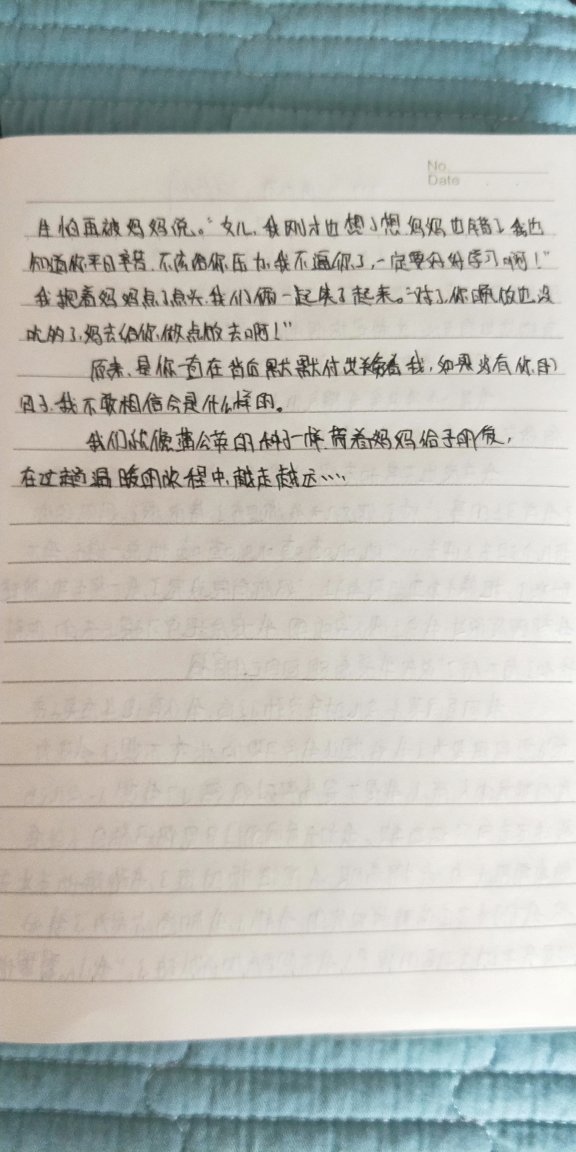 No.
Date
生怕再被妈妈说。“女儿,我刚才也想了想妈妈也错了我也
知道你平日辛苦,不该给你压力,我不逼你了,一定要好好学习啊!”
我抱着妈妈点了点头,我们俩一起笑了起来。“对了,你晚饭也没
吃的了,妈去给你做点饭去啊!”
原来,是你一直在背后默默付出着我,如果没有你的
日子,我不敢相信会是什么样的。
我们就像蒲公英的种子一样,带着妈妈给予的爱,
在这趟温暖的旅程中,越走越远····